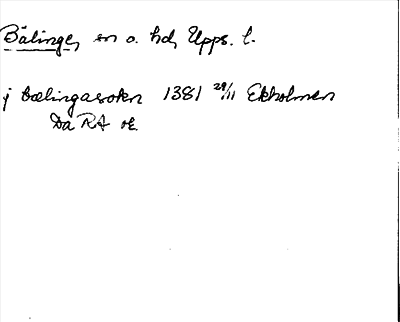 Bälinge, sn o. hd, Upps. l.
j bælingasokn 1381 29/11 Ekholmen
Da RA or.